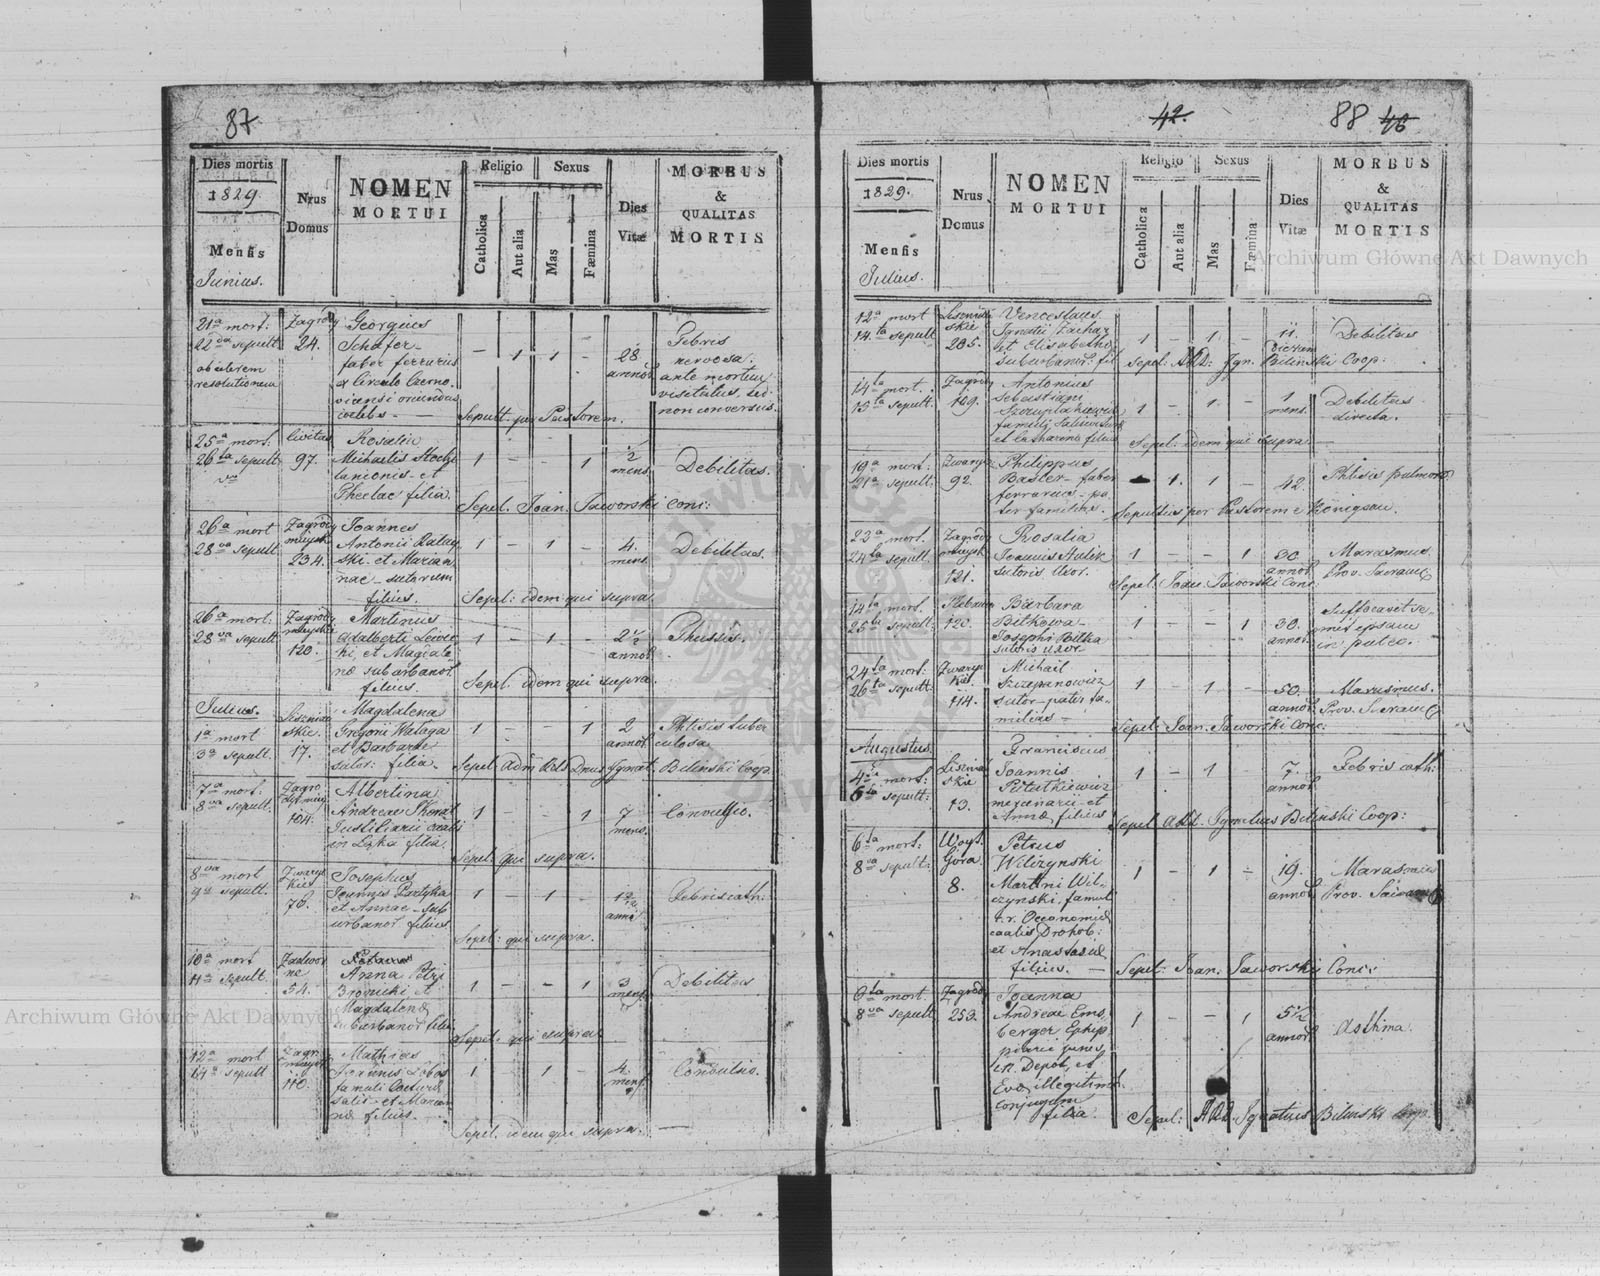 87
Dies mortis
1829.
Mensis
Junius.
Nrus
Domus
NOMEN
MORTUI
Religio
Catholica
Aut alia
Sexus
Mas
Fæmina
Dies
Vitæ
MORBUS
&
QUALITAS
MORTIS
21a mort:
22da sepult
ob celerem
resolutionem
Zagrody
24.
Georgius
Schäfer
faber ferrarius
e Circulo Czerno-
viciensi oriundus
cælebs
- 1 1 -
28
annor
Febris
nervosa.
ante mortem
visitatus, sed
non conversus.
Sepult. per Pastorem.
25a mort:
26ta sepult
Civitas
97.
Rosalia
Michaelis Stochl
lanionis et
Theclae filia.
1 - - 1
1/2
mens
Debilitas.
Sepel. Joan. Jaworski Conc:
26a mort
28va sepult
Zagrody
mieysk
234.
Joannes
Antonii
ski et Marian
nae sutorum
filius.
1 - 1 -
4.
mens.
Debilitas.
Sepel: idem qui supra.
26a mort:
28va sepult
Zagrody
mieyskie
120.
Martinus
Adalberti
ki, et Magdale
næ suburbanor
filius.
1 - 1 -
2 1/2
annor
Phtissis.
Sepel. idem qui supra.
Julius.
1a mort
3a sepult.
Lisznian
skie.
17.
Magdalena
Gregorii Wataga
et Barbaræ
sutor: filia.
1 - - 1
2
annor
Phtisis tuber
culosa
Sepel. Adm Rds Dnus Ignat. Bilinski Coop.
7a mort:
8va sepult.
Zagro
dy miey
104.
Albertina
Andreae
Justitiarii
in Łąka filia.
1 - - 1
7
mens.
Convulsio.
Sepel. qui supra.
8va mort
9a sepult.
Zwaryc
kie
76.
Josephus
Joannis
et Annae sub
urbanor filius
1 - 1 -
1 1/2
anni
Febris cath.
Sepel: qui supra.
10a mort
11a sepult.
Zadwor
ne
54.
Anna Petri
Bronicki et
Magdalenæ
suburbanor filia
1 - - 1
3
mens.
Debilitas
Sepel. qui supra
12a mort
14a sepult
Zagr.
mieysk
110.
Mathias
Joannis
famuli Cocturæ
salis et Marian
næ filius.
1 - 1 -
4.
mens.
Convulsio.
Sepel. idem qui supra.
42.
88 46
Dies mortis
1829.
Mensis
Julius.
Nrus
Domus
NOMEN
MORTUI
Religio
Catholica
Aut alia
Sexus
Mas
Fæmina
Dies
Vitæ
MORBUS
&
QUALITAS
MORTIS
12a mort
14ta sepult
Liszniań
skie
205.
Venceslaus
Ignatii Zachar
et Elisabethæ
suburbanor. fil
1 - 1 -
11.
dierum
Debilitas
Sepel: Rds: Ign. Bilinski Coop.
14ta mort.
15ta sepult.
Zagrody
109.
Antonius
Sebastiani
famuli Salinaris
et Catharenæ filius
1 - 1 -
1
mens.
Debilitas
directa.
Sepel: idem qui supra
19a mort:
21a sepult.
Zwaryc
92.
Philippus
Basler faber
ferrarius pa
ter familias.
- 1. 1 -
42.
Phtisis pulmonu
Sepultus per Pastorem e Königsau.
23a mort.
24ta sepult.
Zagrody
mieysk
121.
Rosalia
Joannis
sutoris Uxor.
1 - - 1
30.
annor
Marasmus.
Prov. Sacram
Sepel: Joan. Jaworski Conc.
14ta mort.
25ta sepult.
Plebania
120.
Barbara
Bitkowa
Josephi Bitka
sutoris uxor
1 - - 1
30.
annor
Suffocavit se-
met ipsam
in puteo.
24ta mort.
26ta sepult.
Zwaryc
kie.
114.
Michail
Szczepanowicz
sutor pater fa-
milias
1 - 1 -
50.
annor
Marasmus.
Prov. Sacram
Sepel: Joan. Jaworski Conc:
Augustus.
4ta mort:
6ta sepult:
Liszniań
skie
13.
Franciscus
Joannis
mercenarii et
Annæ filius
1 - 1 -
7.
annor
Febris cath:
Sepel Rds. Ignatius Bilinski Coop:
6ta mort:
8va sepult:
Woyt.
Góra
8.
Petrus
Wilczynski
Martini Wil-
czynski, famul
c. r. Oeconomiæ
caalis Drohob:
et Anastasiæ
filius.
1 - 1 -
19.
annor
Marasmus
Prov. Sacram
Sepel: Joan. Jaworski Conc:
6ta mort.
8va sepult
Zagrody
253.
Joanna
Andreæ Ems
berger Ephip
piarii
in Depot, et
Evæ illegitimor
conjugum
filia.
1 - - 1
5 1/2
annor
Asthma.
Sepel: Rds Ignatius Bilinski Coop.
Archiwum Główne Akt Dawnych
Archiwum Główne Akt Dawnych